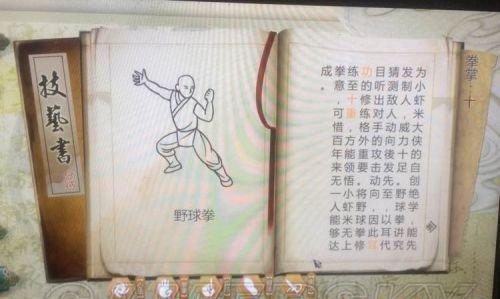 技藝書
野球拳
为小虾米大侠的自创绝学，能先
发制人，威力十足。野球拳讲究
猜测敌人动向後发先至，以耳代
目听出对手的攻击动向，因此
功的修练格外重要。将野球拳修
练至十重，方能领悟小虾米无上
拳意，可惜百年来无一人能够达
成。
拳掌·十